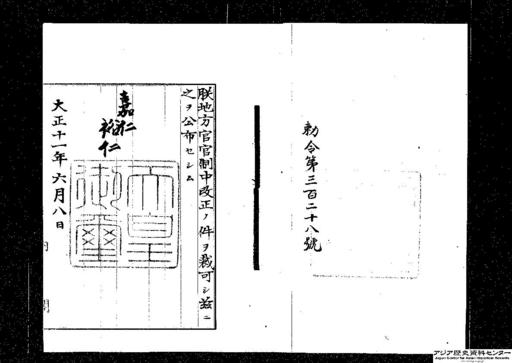 勅令第三百二十八號
朕地方官官制中改正ノ件ヲ裁可シ茲ニ
之ヲ公布セシム
嘉仁
裕仁
天皇
御璽
大正十一年六月八日
内閣
アジア歴史資料センター
Japan Center for Asian Historical Records